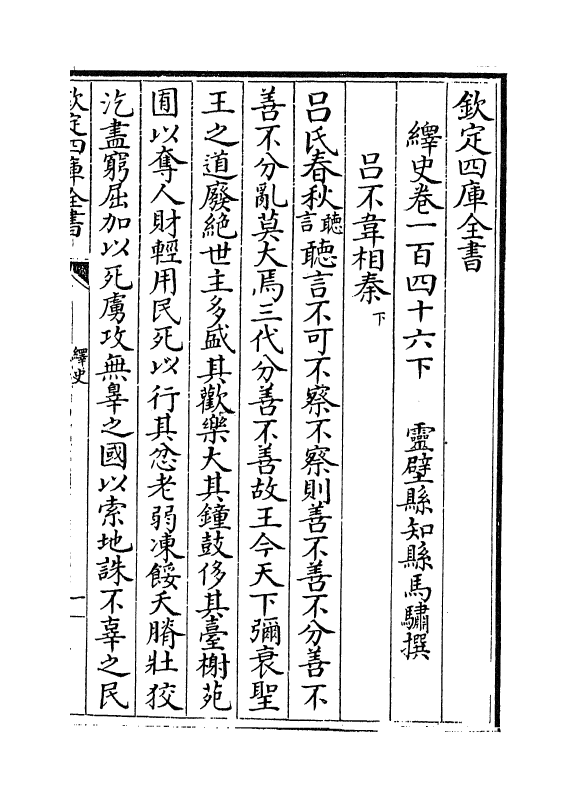 欽定四庫全書
繹史卷一百四十六下　靈壁縣知縣馬驌撰
呂不韋相秦下
呂氏春秋聽言聽言不可不察不察則善不善不分善不
善不分亂莫大焉三代分善不善故王今天下彌衰聖
王之道廢絶世主多盛其歡樂大其鐘鼓侈其臺榭苑
囿以奪人財輕用民死以行其忿老弱凍餒夭膌壯狡
汔盡窮屈加以死虜攻無辠之國以索地誅不辜之民
欽定四庫全書
繹史
一